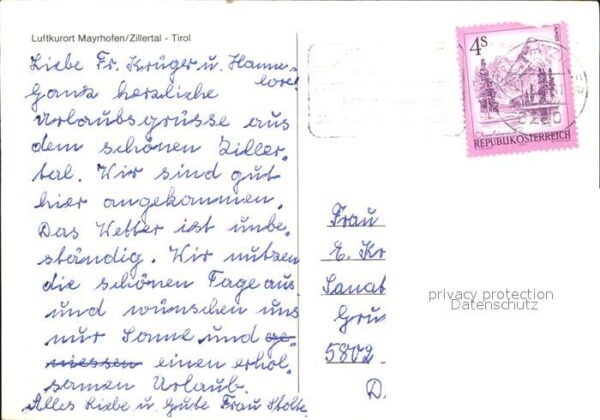 Luftkurort Mayrhofen/Zillertal - Tirol
Liebe Fr. Krüger u. Hanne-
lore!
Ganz herzliche
Urlaubsgrüsse aus
dem schönen Ziller-
tal. Wir sind gut
hier angekommen.
Das Wetter ist unbe-
ständig. Wir nutzen
die schönen Tage aus
und wünschen uns
nur Sonne und ge-
niessen einen erhol-
samen Urlaub.
Alles Liebe u. Gute Frau Stolte
4S
REPUBLIK ÖSTERREICH
Frau
E. Kr
Sanat
Grü
5802
D.
privacy protection
Datenschutz